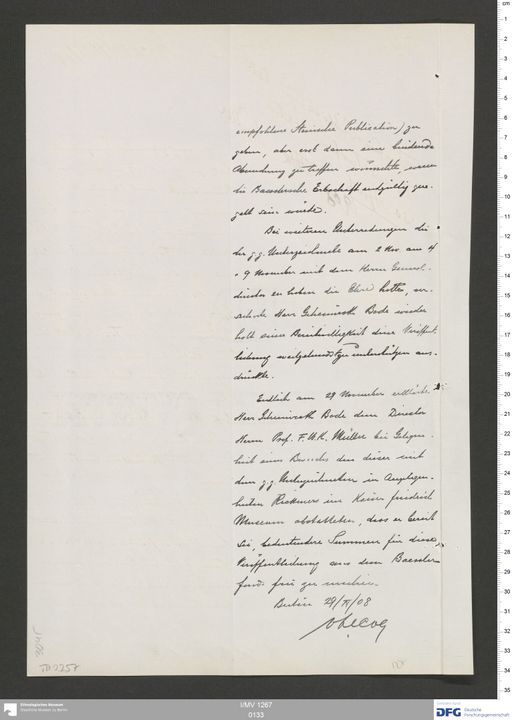 empfohlene Steinsche Publication) zu
geben, aber erst dann eine bindende
Abmachung zu treffen wünschte, wenn
die Baesslersche Erbschaft endgültig gere-
gelt sein würde.
Bei weiteren Unterredungen die
der g.g. Unterzeichnete am 2 Nov. am 4
9 November mit dem Herrn General-
direktor zu haben die Ehre hatten, ver-
sicherte Herr Geheimrath Bode wieder
holt seine Bereitwilligkeit diese Veröffent-
lichung weitgehendst zu unterstützen aus-
drückte.
Endlich am 28 November erklärte
Herr Geheimrath Bode dem Director
Herrn Prof. F.W.K. Müller bei Gelegen-
heit eines Besuches den dieser mit
dem g.g. Unterzeichneten in Angelegen-
heiten Rickmers im Kaiser Friedrich
Museum abstatteten, dass er bereit
sei, bedeutendere Summen für diese
Veröffentlichung aus dem Baessler
fonds frei zu machen.
Berlin 28/XI/08
v Lecoq
TII 2257
cm
1
2
3
4
5
6
7
8
9
10
11
12
13
14
15
16
17
18
19
20
21
22
23
24
25
26
27
28
29
30
31
32
33
34
35
Ethnologisches Museum
Staatliche Museen zu Berlin
I/MV 1267
0133
DFG
Deutsche
Forschungsgemeinschaft